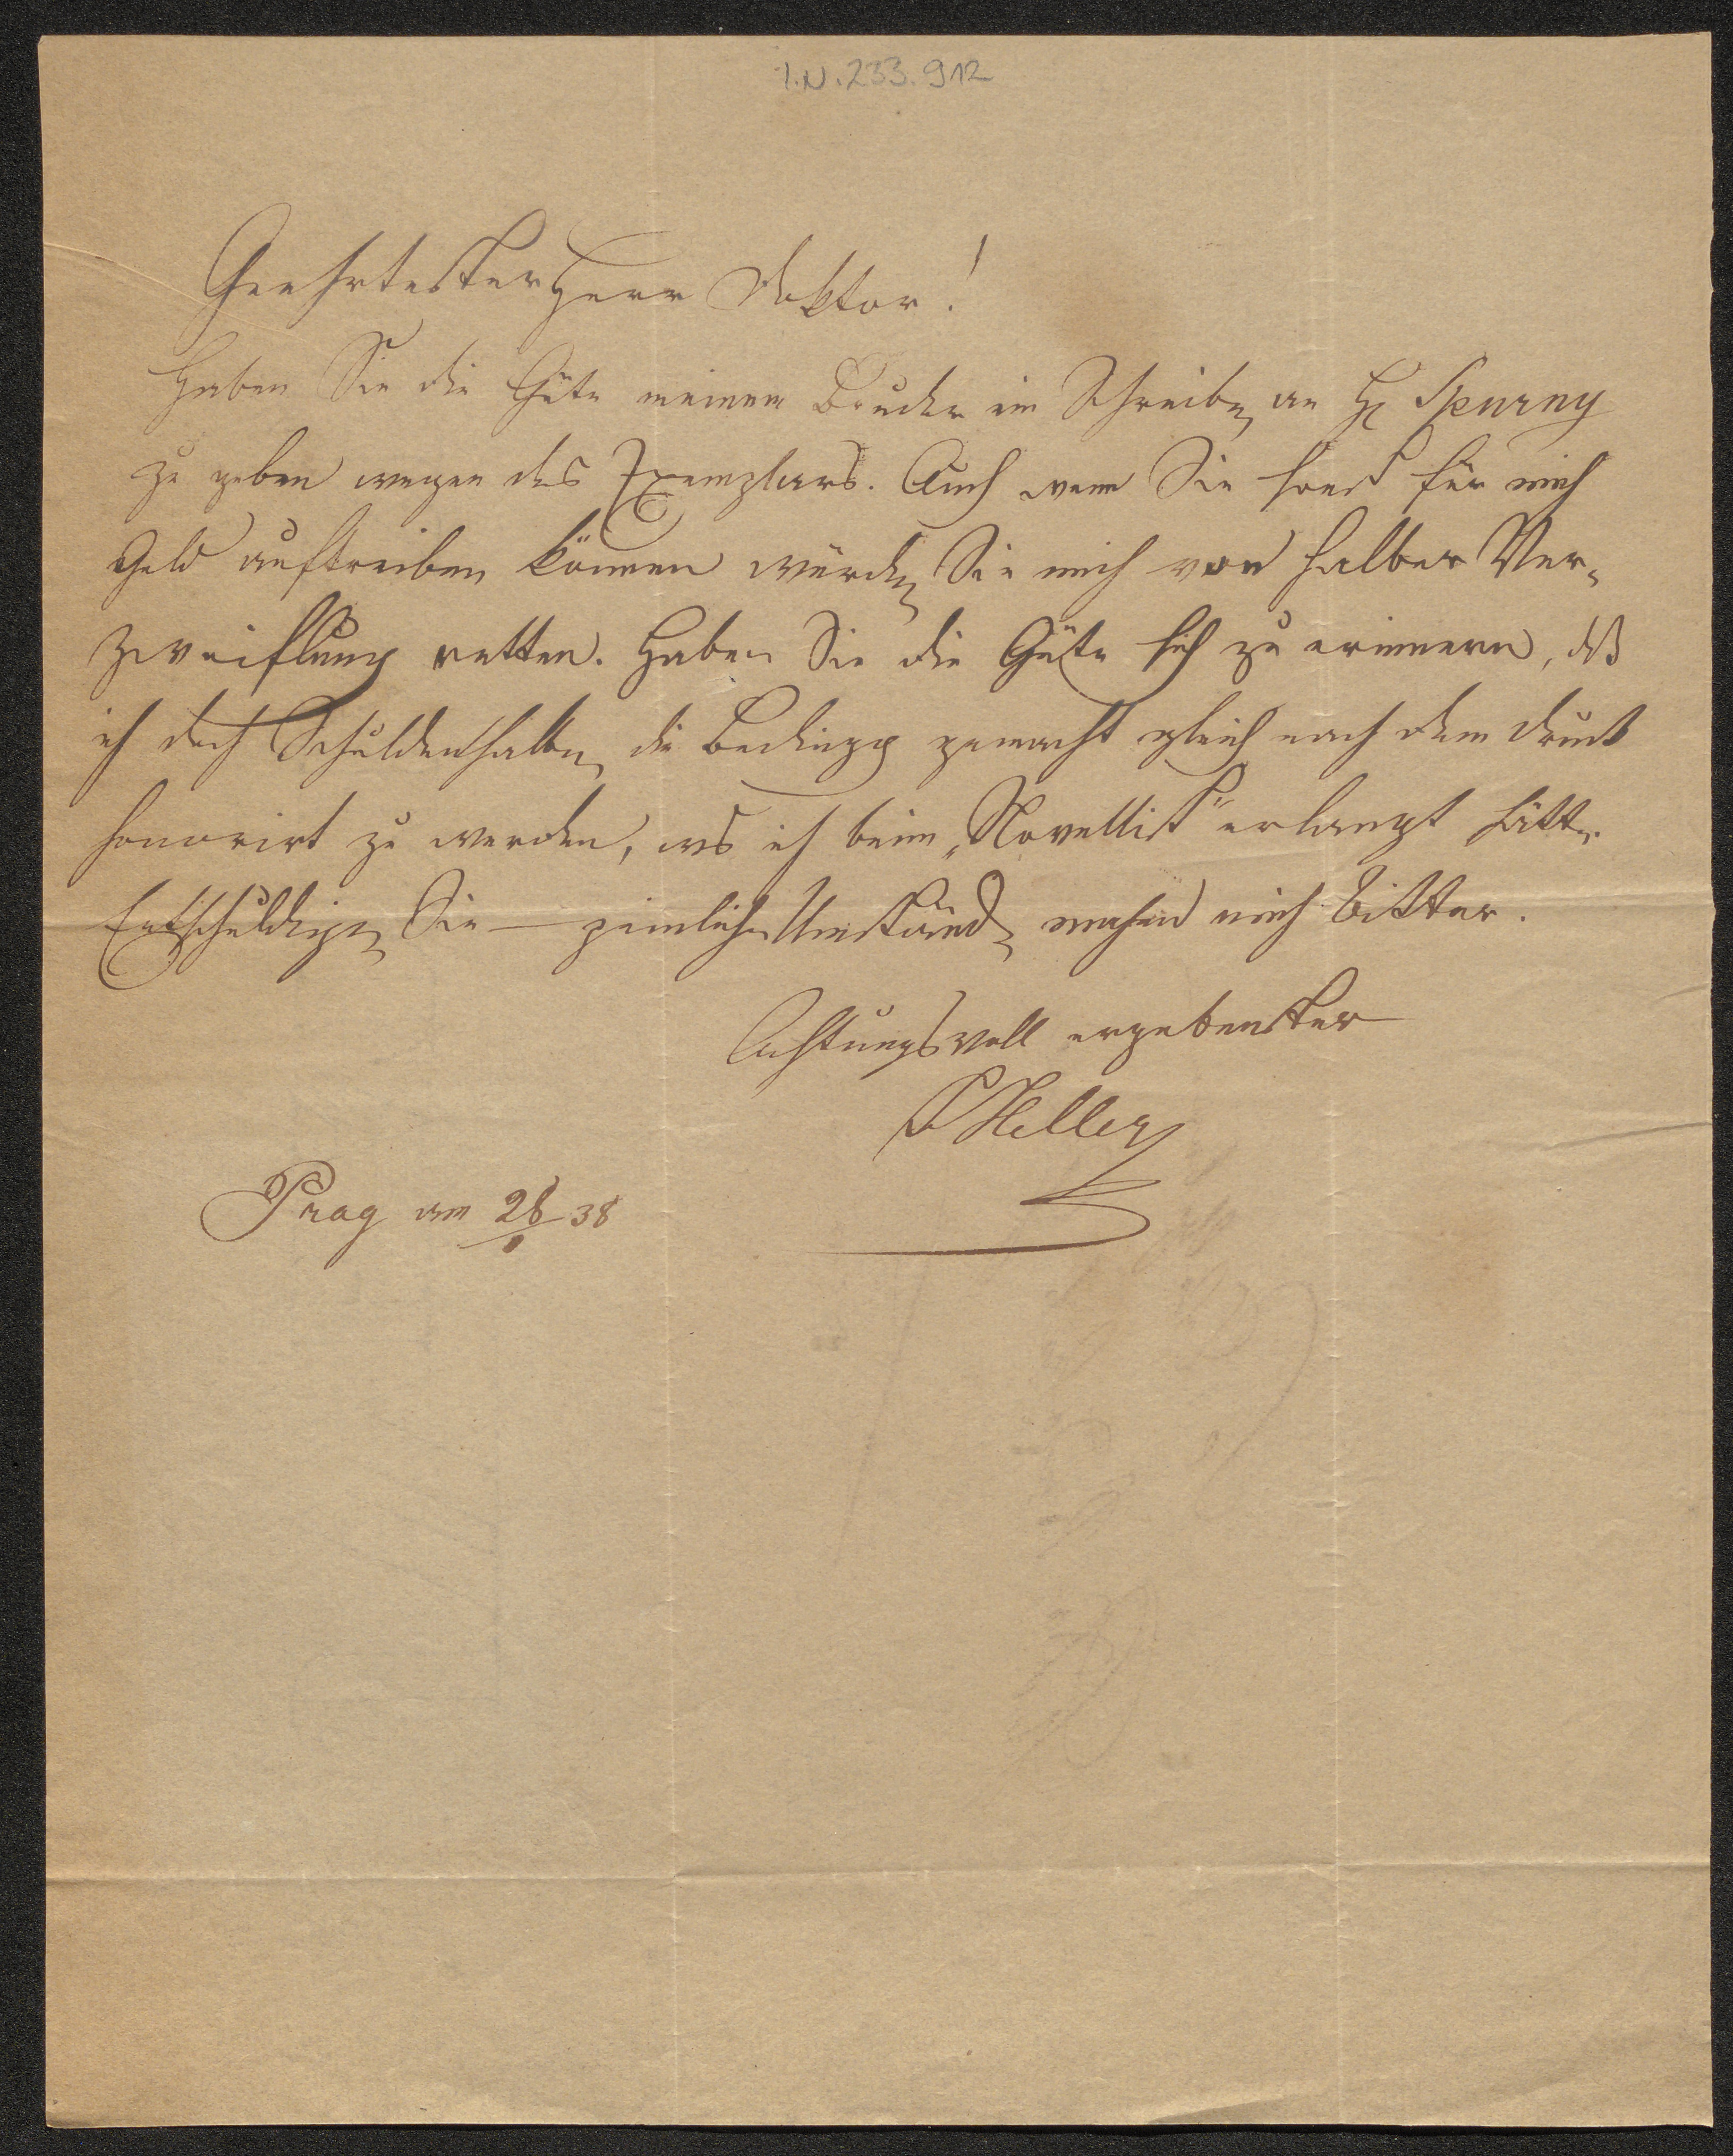 I.N. 233.912
Geehrtester Herr Doktor!
Haben Sie die Güte meinem Bruder ein Schreiben an H Spurny
zu geben wegen des Exemplars. Auch wenn Sie sonst für mich
Geld auftreiben können würden Sie mich von halber Ver-
zweiflung retten. Haben Sie die Güte sich zu erinnern, dß
ich doch Schuldenhalber die Bedingg gemacht gleich nach dem Druck
honorirt zu werden, was ich beim „Novellist" erlangt hätte.
Entschuldigen Sie — peinliche Umstände machen mich bitter.
Achtungsvoll ergebenster
Heller
Prag am 28 38